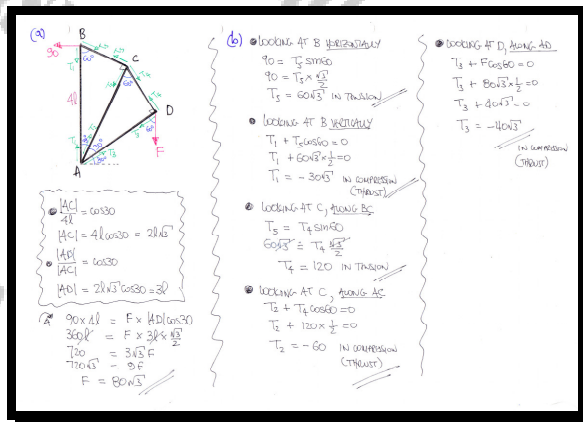 (a)
B
90
T5
T5
T1
60°
C
T4
4l
60°
T4
D
60°
F
T1
T2
T3
30°
30°
30°
A
|AC|/4l = cos30
|AC| = 4l cos30 = 2l√3
|AD|/|AC| = cos30
|AD| = 2l√3 cos30 = 3l
A 90 × 4l = F × |AD| cos30
360l = F × 3l × √3/2
720 = 3√3 F
720√3 = 9F
F = 80√3
(b) LOOKING AT B HORIZONTALLY
90 = T5 sin60
90 = T5 × √3/2
T5 = 60√3 IN TENSION
LOOKING AT B VERTICALLY
T1 + T5 cos60 = 0
T1 + 60√3 × 1/2 = 0
T1 = -30√3 IN COMPRESSION
(THRUST)
LOOKING AT C, ALONG BC
T5 = T4 sin60
60√3 = T4 √3/2
T4 = 120 IN TENSION
LOOKING AT C, ALONG AC
T2 + T4 cos60 = 0
T2 + 120 × 1/2 = 0
T2 = -60 IN COMPRESSION
(THRUST)
LOOKING AT D, ALONG AD
T3 + F cos60 = 0
T3 + 80√3 × 1/2 = 0
T3 + 40√3 = 0
T3 = -40√3
IN COMPRESSION
(THRUST)